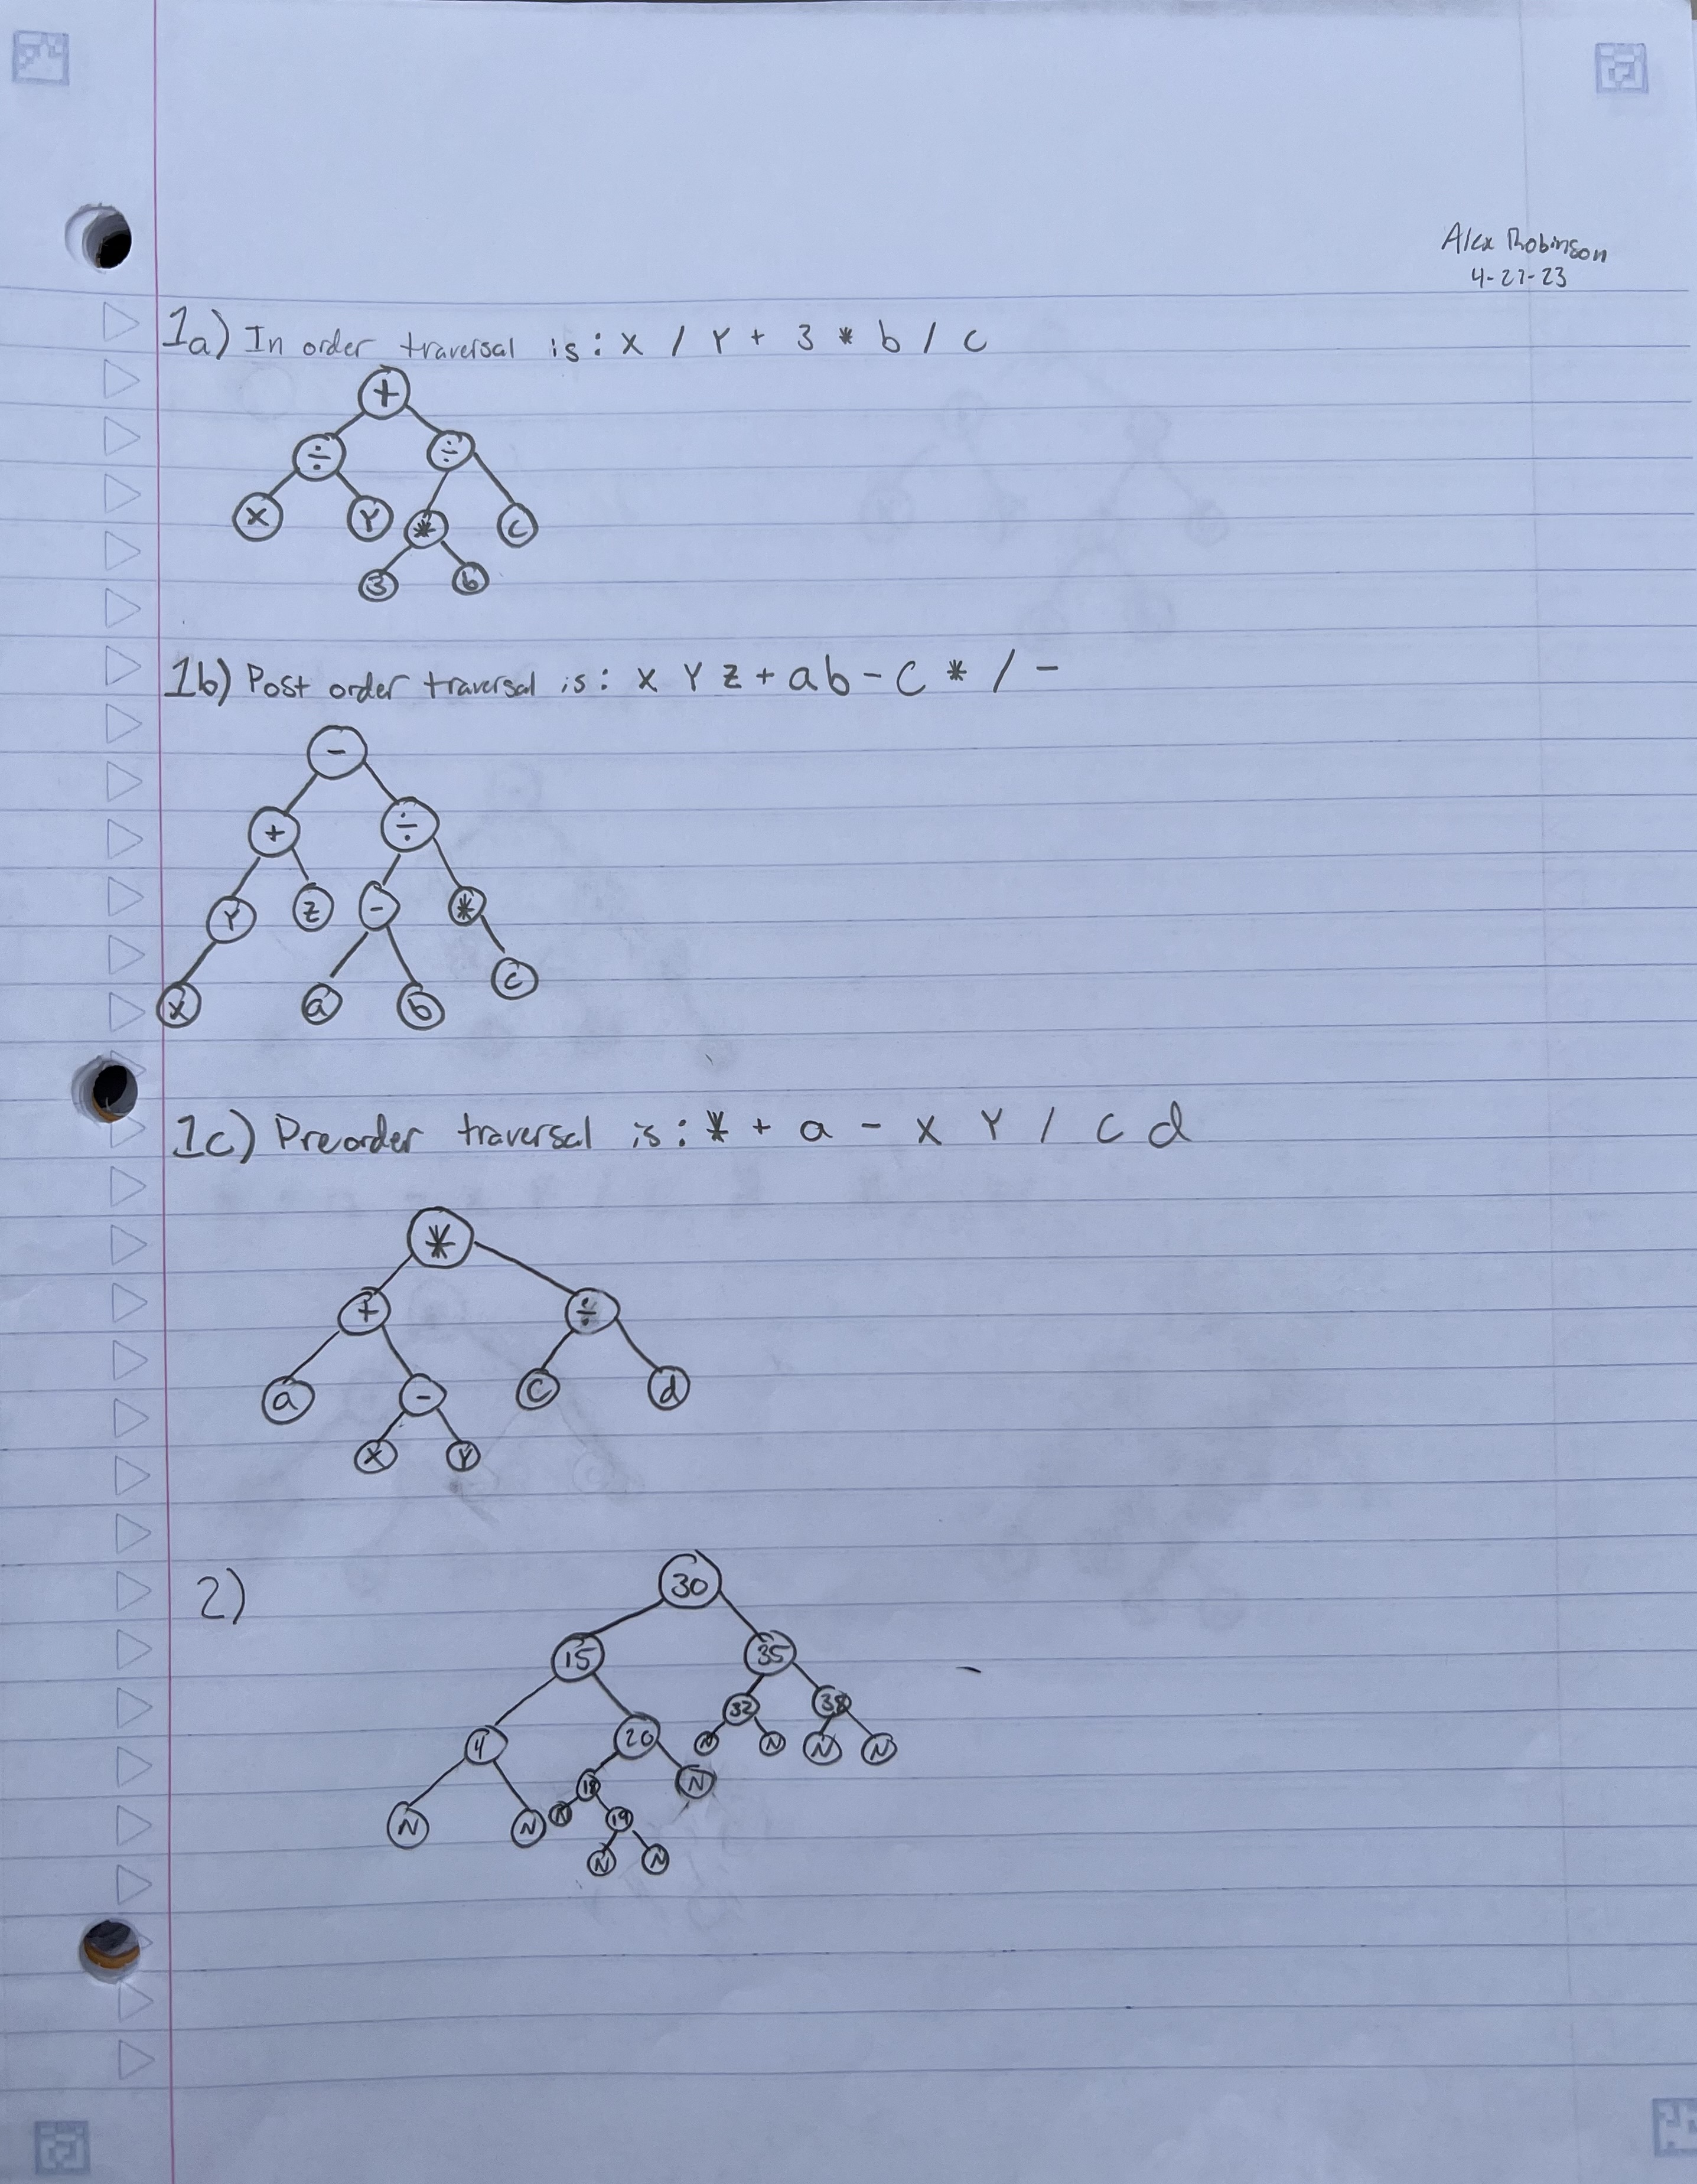 Alex Robinson
4-27-23
1a) In order traversal is: x / Y + 3 * b / c
+
÷ ÷
X Y * C
3 b
1b) Post order traversal is: X Y Z + a b - C * / -
-
+ ÷
Y Z - *
X a b C
1c) Preorder traversal is: * + a - X Y / C d
*
+ ÷
a - C d
X Y
2)
30
15 35
32 38
4 20 N N N N
18 N
N N N 19
N N